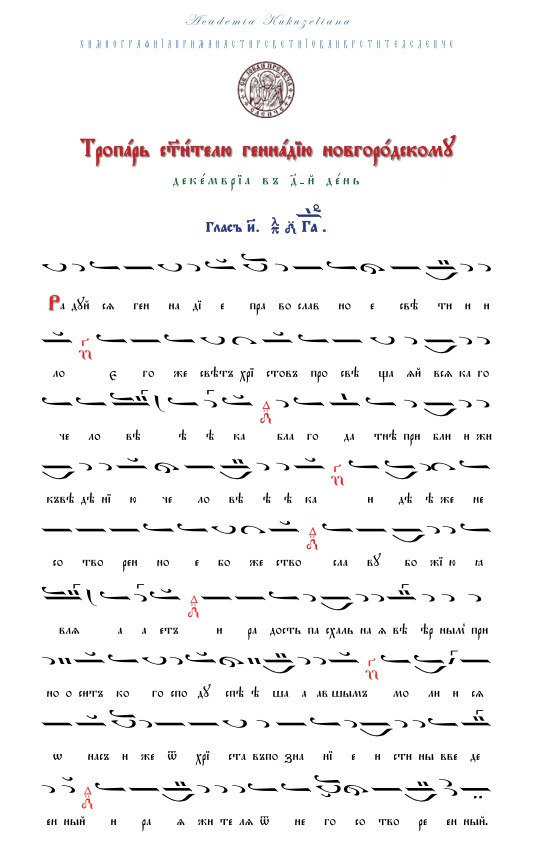 Academia Kukuzeliana
ХИМНОГРАФІЯПРИМАНАСТИРСВЕТІЙОВАНКРСТИТЕЛСЛЕПЧЕ
СВ ЈОВАН ПРЕТЕЧА СЛЕПЧЕ
Тропа́рь ст҃и́телю генна́дїю новгоро́дскомꙋ
деке́мврїа въ д҃-й де́нь
Гласъ и҃. Га.
Ра дꙋй сѧ ген на дї е пра во слав но е свѣ ти и и
ло Є го же свѣтъ хрї стовъ про свѣ ща ѧй всѧ ка го
че ло вѣ ѣ ѣ ка бла го да тнѣ при бли и жи
къвѣ дѣ нї ю че ло вѣ ѣ ѣ ка и дѣ ѣ же не
со тво рен но е бо же ство сла вꙋ бо жї ю ꙗ
влѧ а а етъ и ра дость па схаль на ѧ вѣ ѣр нымъ при
но о ситъ ко го спо дꙋ спѣ ѣ ша а авшымъ мо ли и сѧ
ѡ насъ и же ѿ хрї ста въпо зна нї е и сти ны вве де
ен ный и ра ѧ жи те лѧ ѿ не го со тво ре ен ный.